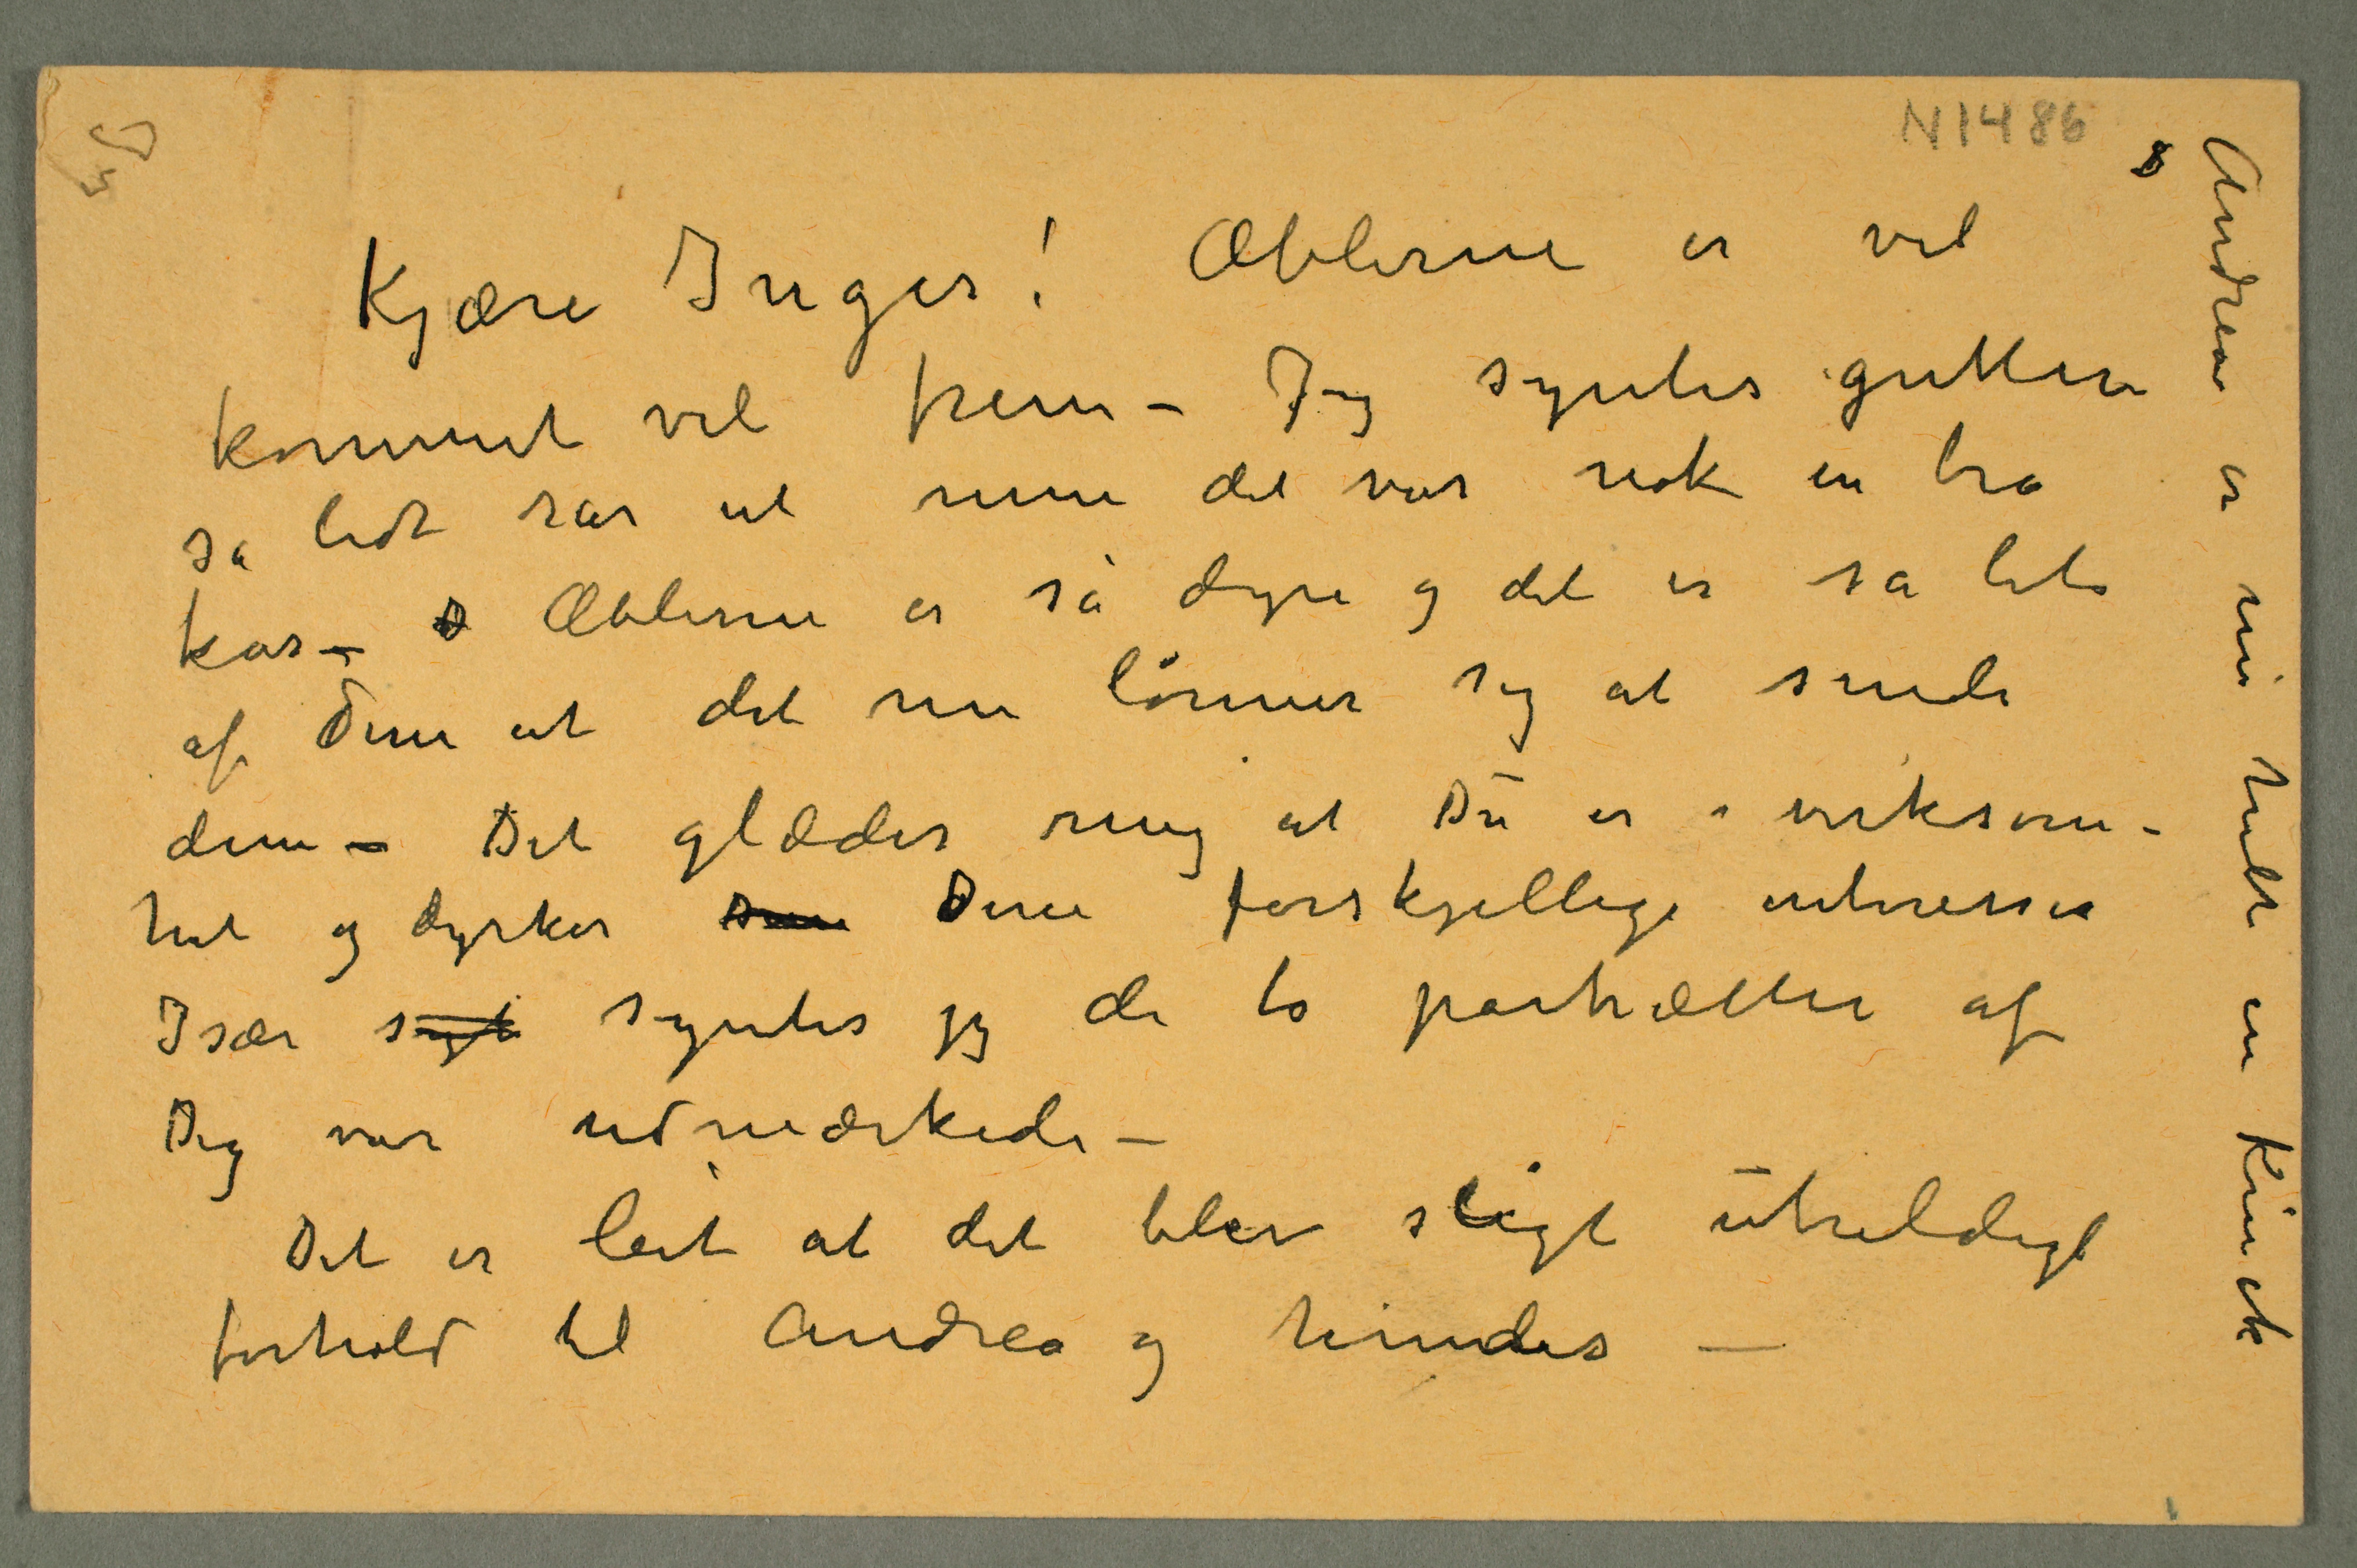 N1486
Kjære Inger! Æblerne er vel
kommet vel frem – Jeg syntes gutten
så lidt rar ut men det var nok en bra
kar – Æblerne er så dyre og det er så lite
af dem at det nu lønner sig at sende
dem – Det glæder mig at Du er i virksom-
het og dyrker Dine Dine forskjellige interesser
Især syt syntes jeg de to portrætter af
Dig var udmærkede –
Det er leit at det blev sligt uheldigt
forhold til Andrea og hendes –
Andrea er nu helt en Kinck